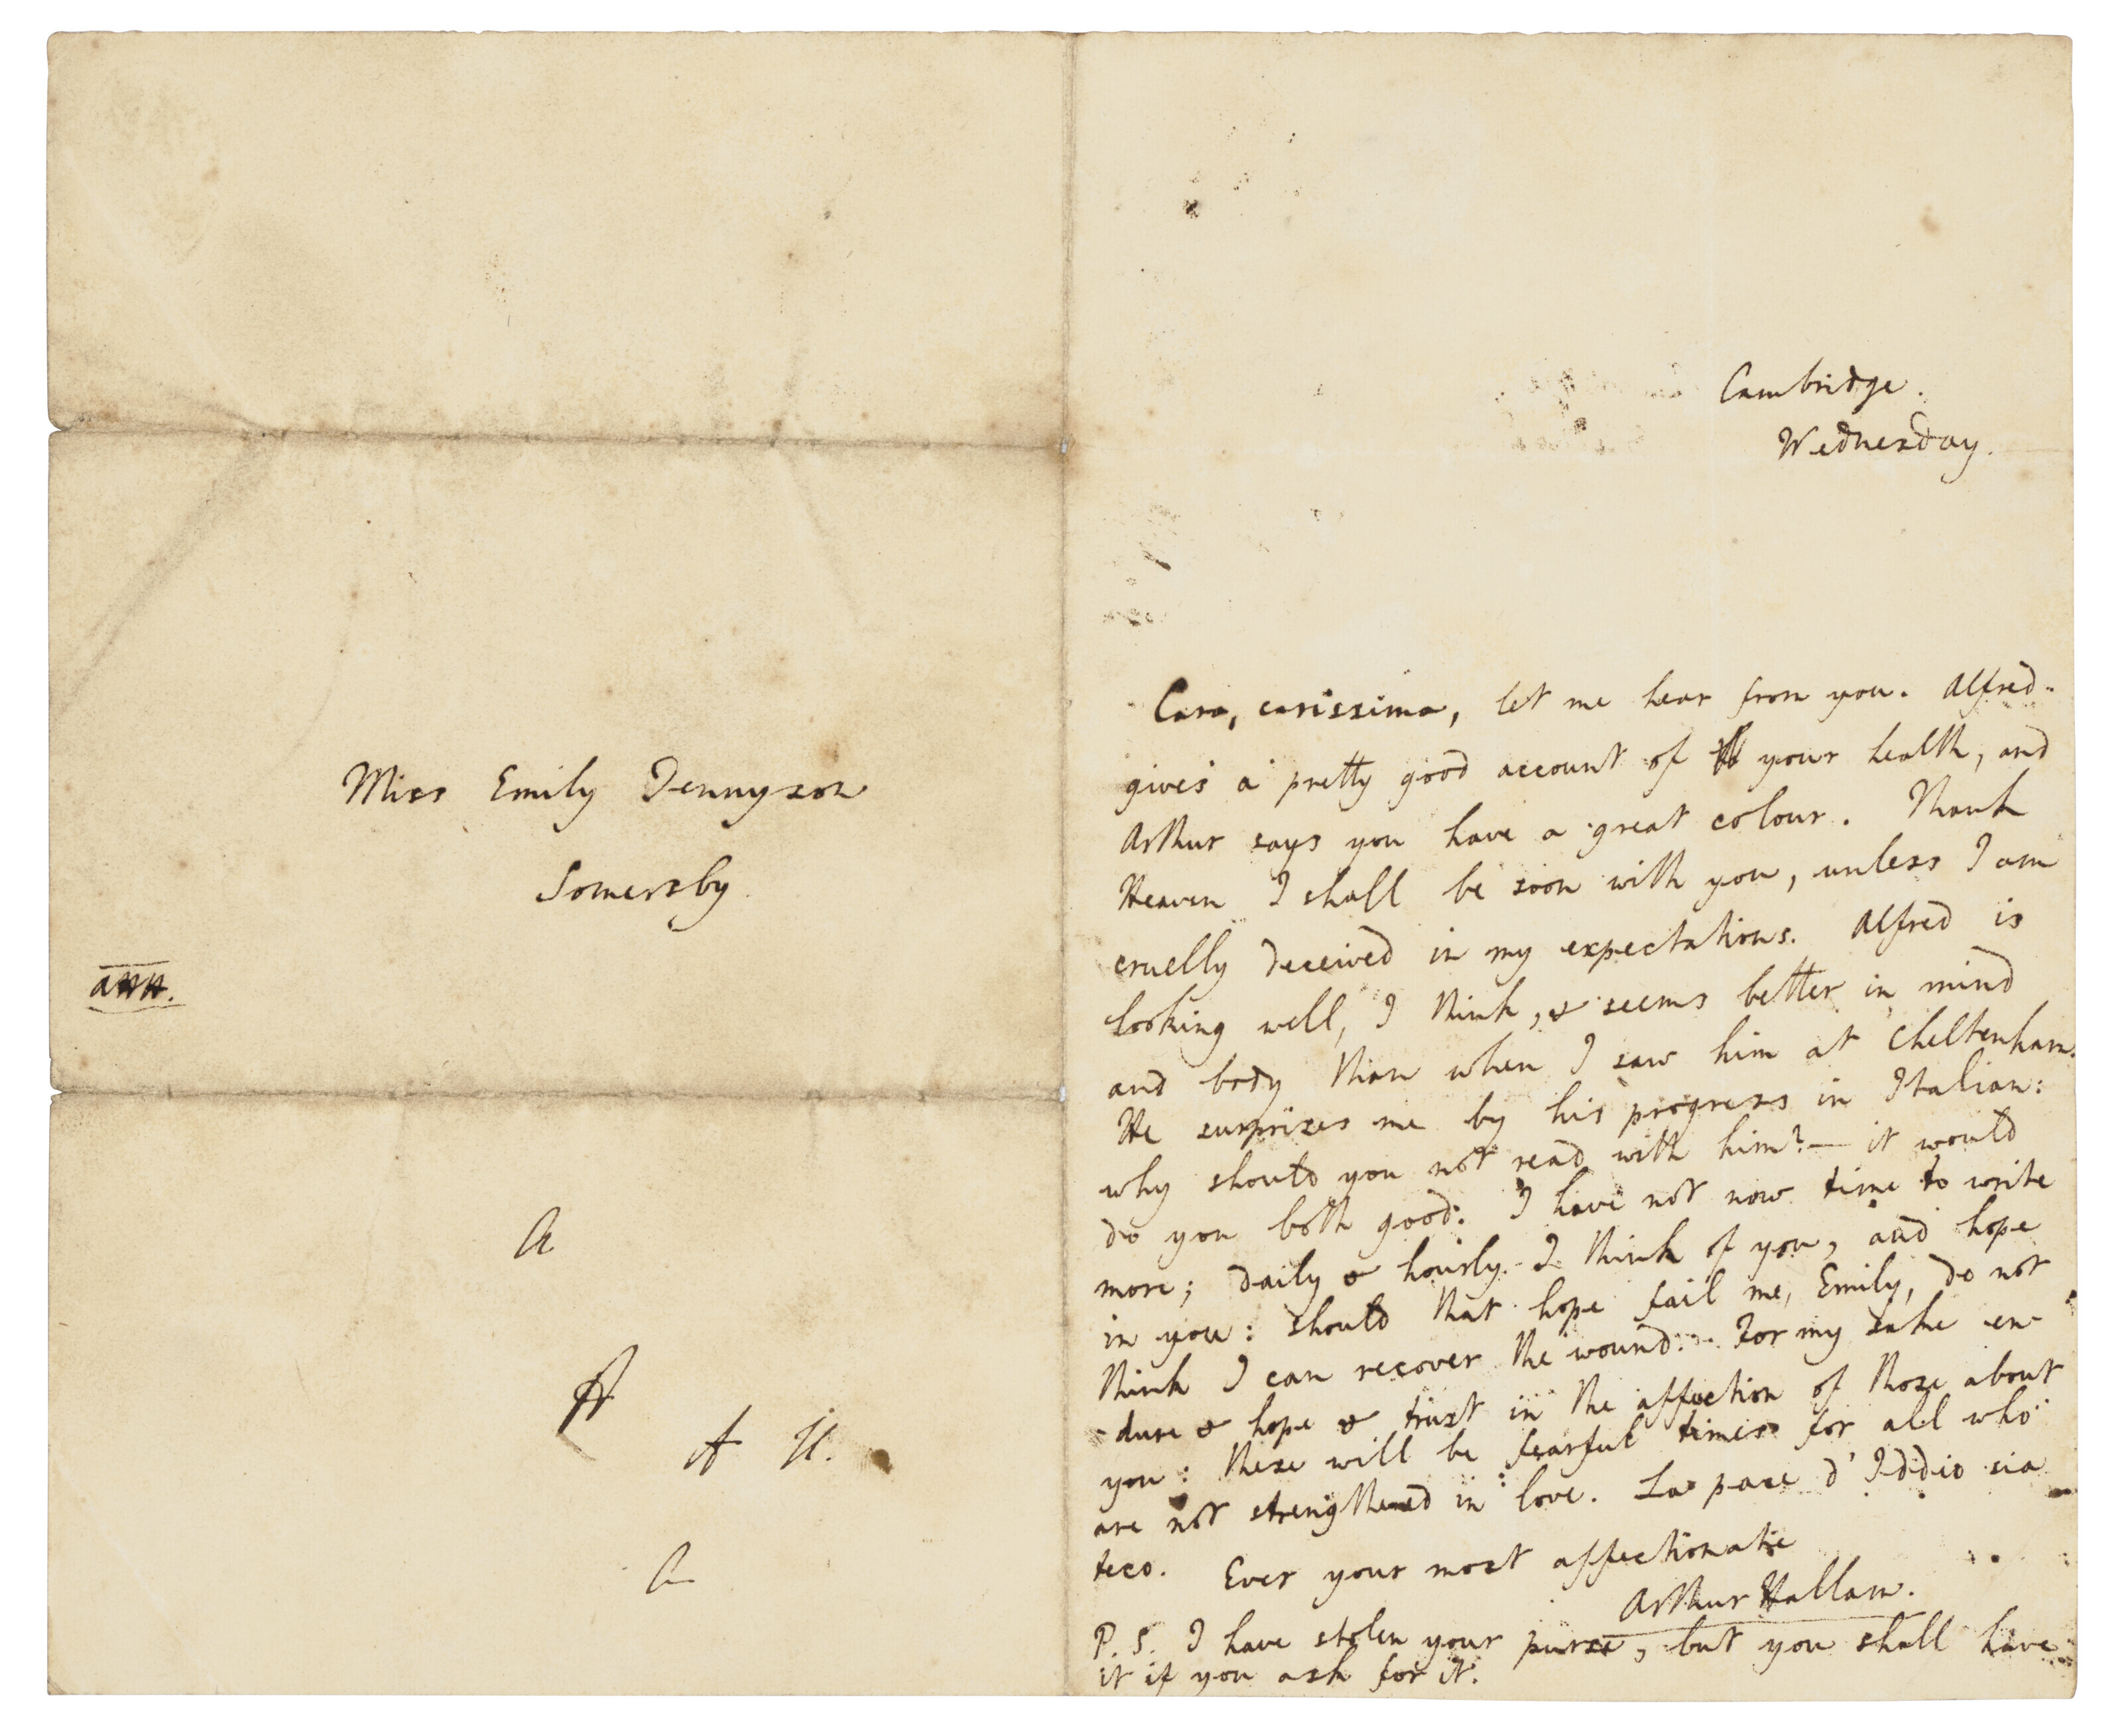 Miss Emily Tennyson
Somersby
AHH.
A
A
A H.
A
Cambridge.
Wednesday.
Cara, carissima, let me hear from you. Alfred
gives a pretty good account of your health, and
Arthur says you have a great colour. Thank
Heaven I shall be soon with you, unless I am
cruelly deceived in my expectations. Alfred is
looking well, I think, & seems better in mind
and body than when I saw him at Cheltenham.
He surprizes me by his progress in Italian:
why should you not read with him? — it would
do you both good. I have not now time to write
more; daily & hourly I think of you, and hope
in you: should that hope fail me, Emily, do not
think I can recover the wound. For my sake en-
-dure & hope & trust in the affection of those about
you: these will be fearful times for all who
are not strengthened in love. La pace d'Iddio sia
teco. Ever your most affectionate
Arthur Hallam.
P.S. I have stolen your purse, but you shall have
it if you ask for it.